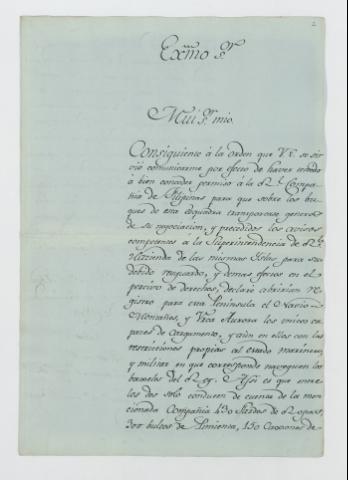 2
Exmo Sr.
Mui Sr. mio.
Consiguiente á la orden que V.E. se sir-
vió comunicarme por efecto de haver tenido
á bien conceder permiso á la Rl. Compa-
ñia de Filipinas para que sobre los bu-
ques de esta Esquadra transportase generos
de su negociacion, y precedidos los avisos
competentes á la Superintendencia de Rl.
Hazienda de las mismas Yslas para su
debido resguardo, y demas efectos en el
percivo de derechos, declaré abrirían re-
gistro para esa Peninsula el Navio
Montañes, y Urca Aurora los unicos ca-
paces de Cargamento, y aún en ellos con las
restricciones propias al estado marinero,
y militar en que corresponde naveguen los
baxeles del Rey. Asi es que entre
los dos solo conducen de cuenta de la men-
cionada Compañia 430 fardos de Ropas,
300 bultos de Pimienta, 150 Caxones de